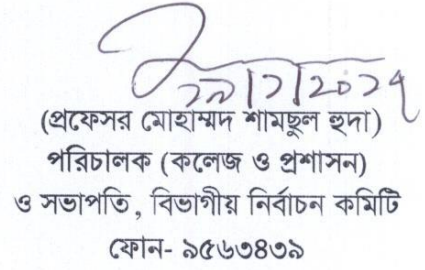 ২৯/১/২০১৭
(প্রফেসর মোহাম্মদ শামছুল হুদা)
পরিচালক (কলেজ ও প্রশাসন)
ও সভাপতি, বিভাগীয় নির্বাচন কমিটি
ফোন- ৯৫৬৩৪৩৯